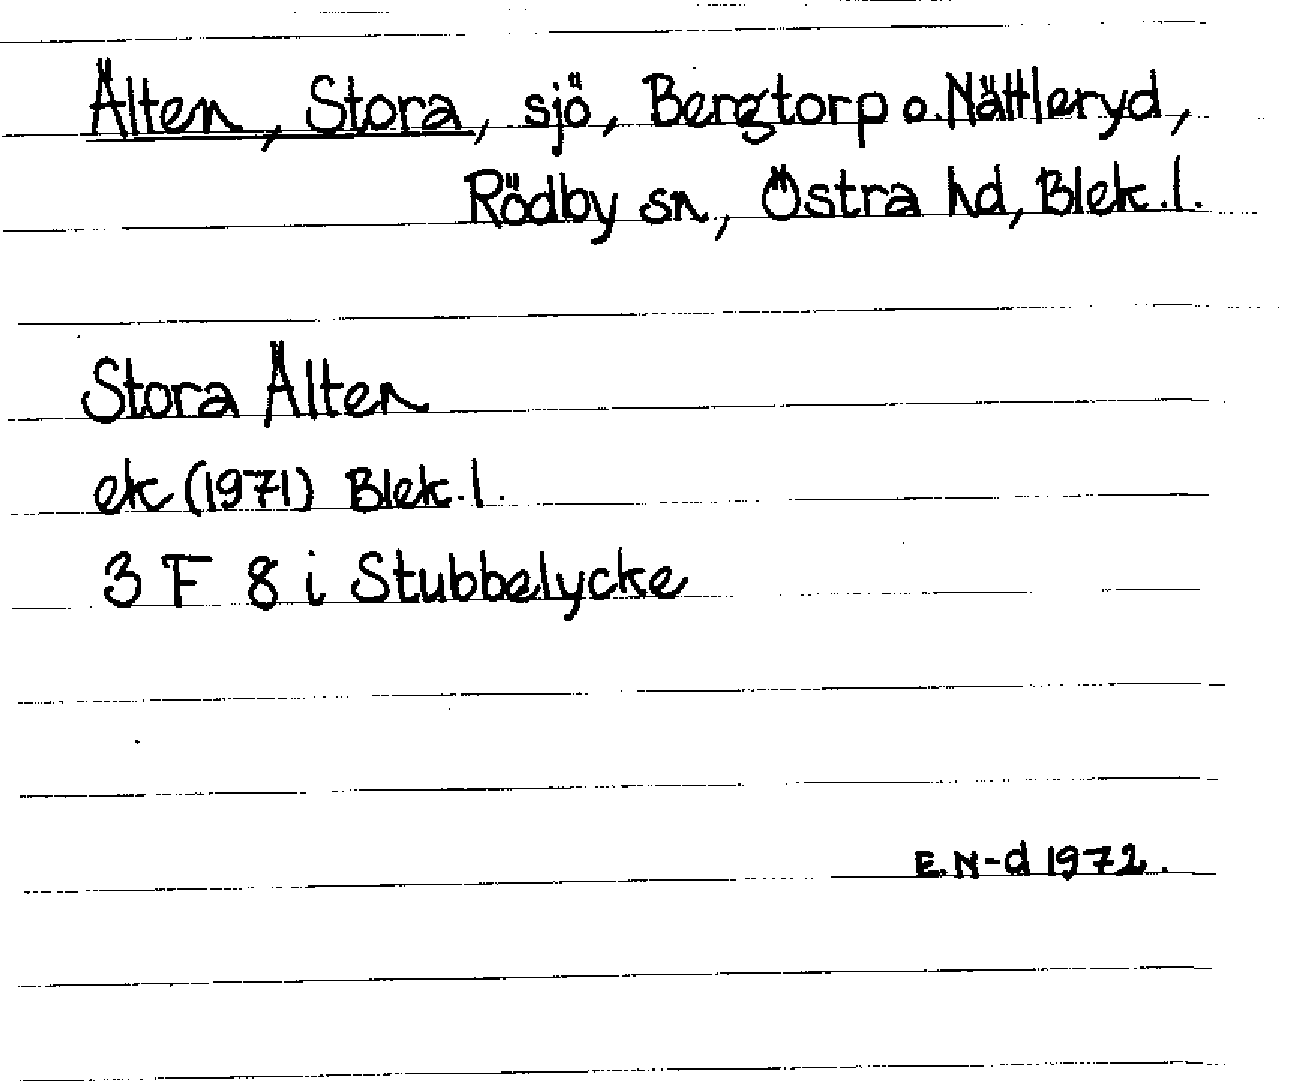 Älten, Stora, sjö, Bergtorp o. Nättleryd,
Rödby sn, Östra hd, Blek. l.
Stora Älten
ek (1971) Blek. l.
3 F 8 i Stubbelycke
E. N-d 1972.